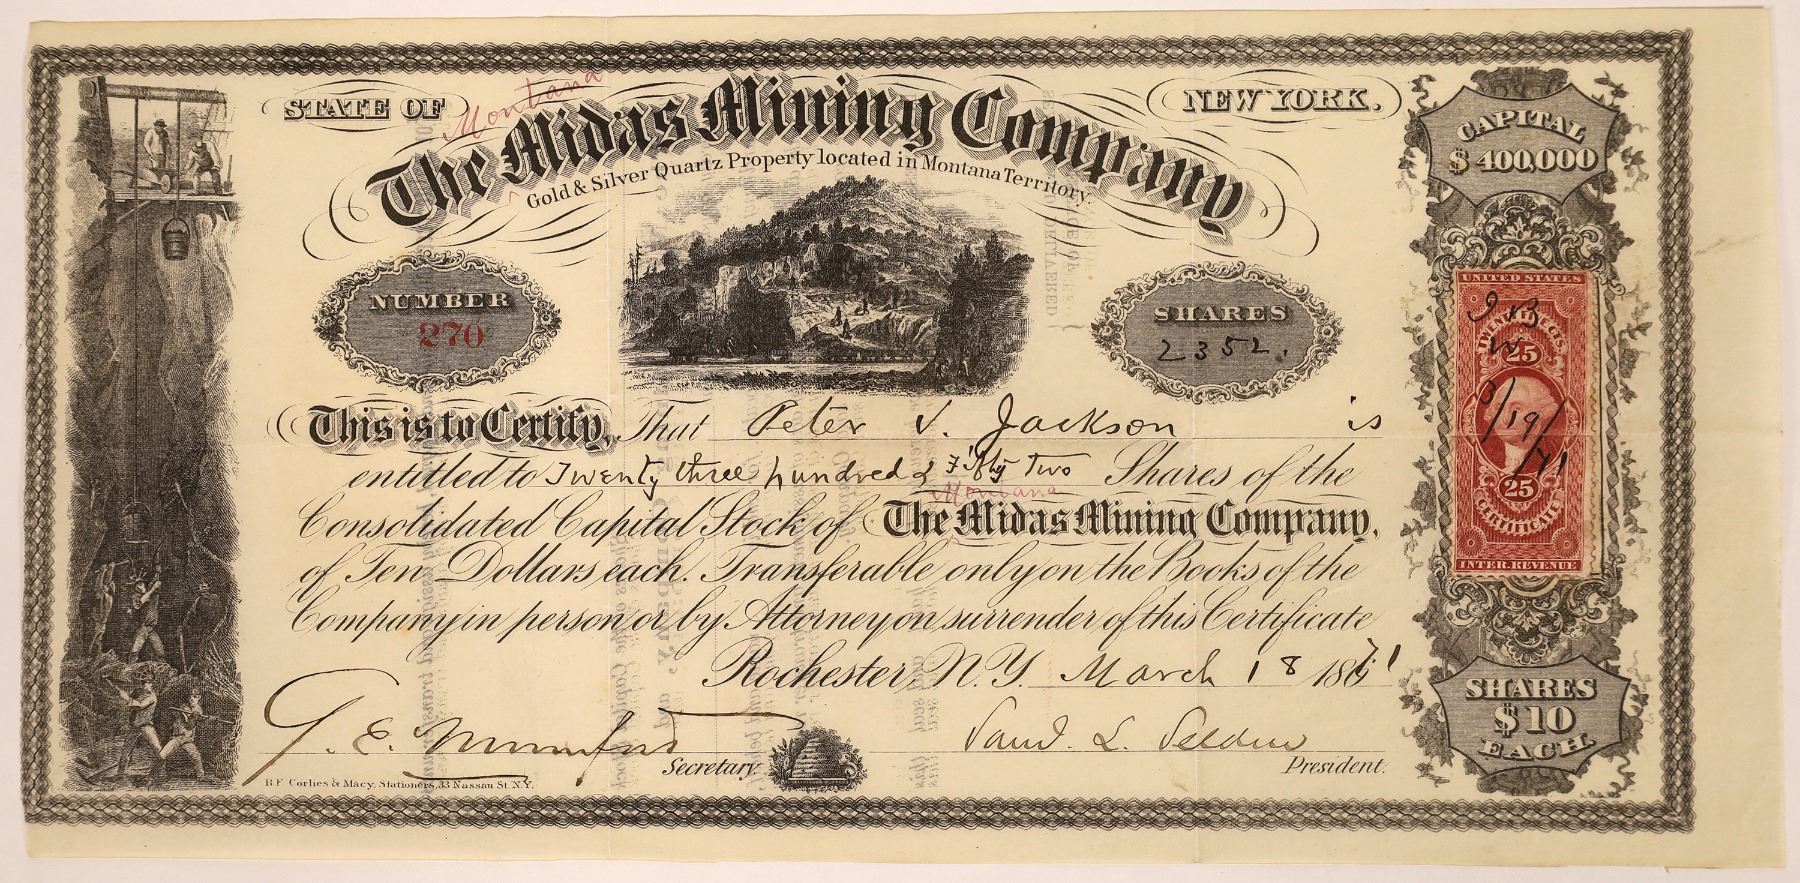 STATE OF
NEW YORK.
Montana
The Midas Mining Company
Gold & Silver Quartz Property located in Montana Territory.
CAPITAL
$ 400,000
NUMBER
270
SHARES
2352.
UNITED STATES
25
3/19/71
25
CERTIFICATE
INTER. REVENUE
This is to Certify, That Peter J. Jackson is
entitled to Twenty three hundred & Fifty Two Shares of the
Montana
Consolidated Capital Stock of The Midas Mining Company,
of Ten Dollars each. Transferable only on the Books of the
Company in person or by Attorney on surrender of this Certificate
Rochester, N.Y. March 18 1871
G. E. Mumford
Secretary.
Saml. L. Selden
President.
SHARES
$10
EACH.
B.F. Corlies & Macy, Stationers, 33 Nassau St. N.Y.